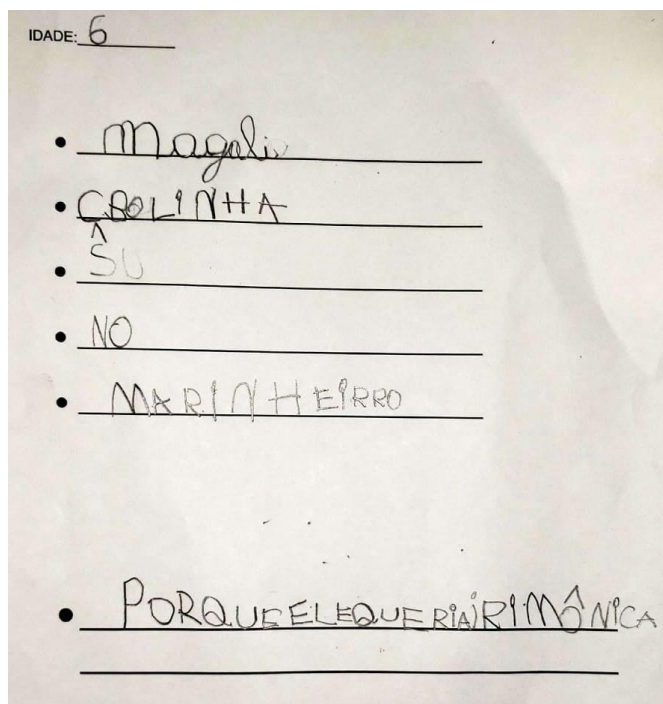 IDADE: 6
• Magali
• CBOLINHA
^
• SU
• NO
• MARINHEIRRO
• PORQUEELEQUERIAIRIMÔNICA